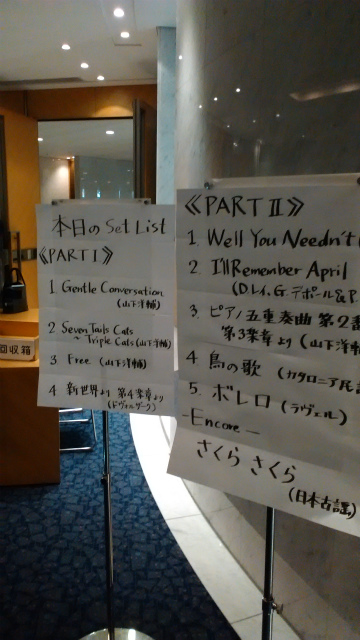 本日のSet List
《PART I》
1 Gentle Conversation
(山下洋輔)
2 Seven Tails Cats
~ Triple Cats (山下洋輔)
3 Free (山下洋輔)
4 新世界より 第4楽章より
(ドヴォルザーク)
回収箱
《PART II》
1. Well You Needn't
2. I'll Remember April
(D.レイ, G.デポール& P.
3. ピアノ五重奏曲 第2楽
第3楽章より (山下洋輔
4 鳥の歌 (カタロニア民
5. ボレロ (ラヴェル)
-Encore-
さくら さくら
(日本古謡)